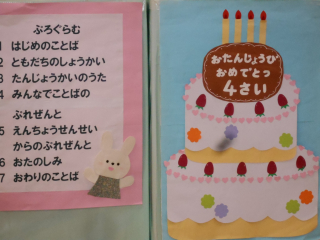 ぷろぐらむ
1 はじめのことば
2 ともだちのしょうかい
3 たんじょうかいのうた
4 みんなでことばの
ぷれぜんと
5 えんちょうせんせい
からのぷれぜんと
6 おたのしみ
7 おわりのことば
おたんじょうび
おめでとう
4さい